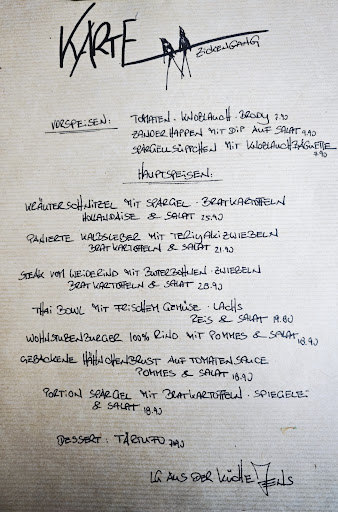 KARTE
ZICKENGANG
VORSPEISEN: TOMATEN - KNOBLAUCH - BRODY 7.90
ZANDERHAPPEN MIT DIP AUF SALAT 9.90
SPARGELSÜPPCHEN MIT KNOBLAUCHBAGUETTE
7.90
HAUPTSPEISEN:
KRÄUTERSCHNITZEL MIT SPARGEL - BRATKARTOFFELN
HOLLANDAISE & SALAT 25.90
PANIERTE KALBSLEBER MIT TERIYAKIZWIEBELN
BRATKARTOFFELN & SALAT 21.90
STEAK VOM WEIDERIND MIT BUTTERBOHNEN - ZWIEBELN
BRATKARTOFFELN & SALAT 28.90
THAI BOWL MIT FRISCHEM GEMÜSE - LACHS
REIS & SALAT 19.80
WOHNSTUBENBURGER 100% RIND MIT POMMES & SALAT
18.90
GEBACKENE HÄHNCHENBRUST AUF TOMATENSAUCE
POMMES & SALAT 18.90
PORTION SPARGEL MIT BRATKARTOFFELN - SPIEGELEI
& SALAT 18.90
DESSERT: TARTUFO 7.90
LG AUS DER KÜCHE JENS